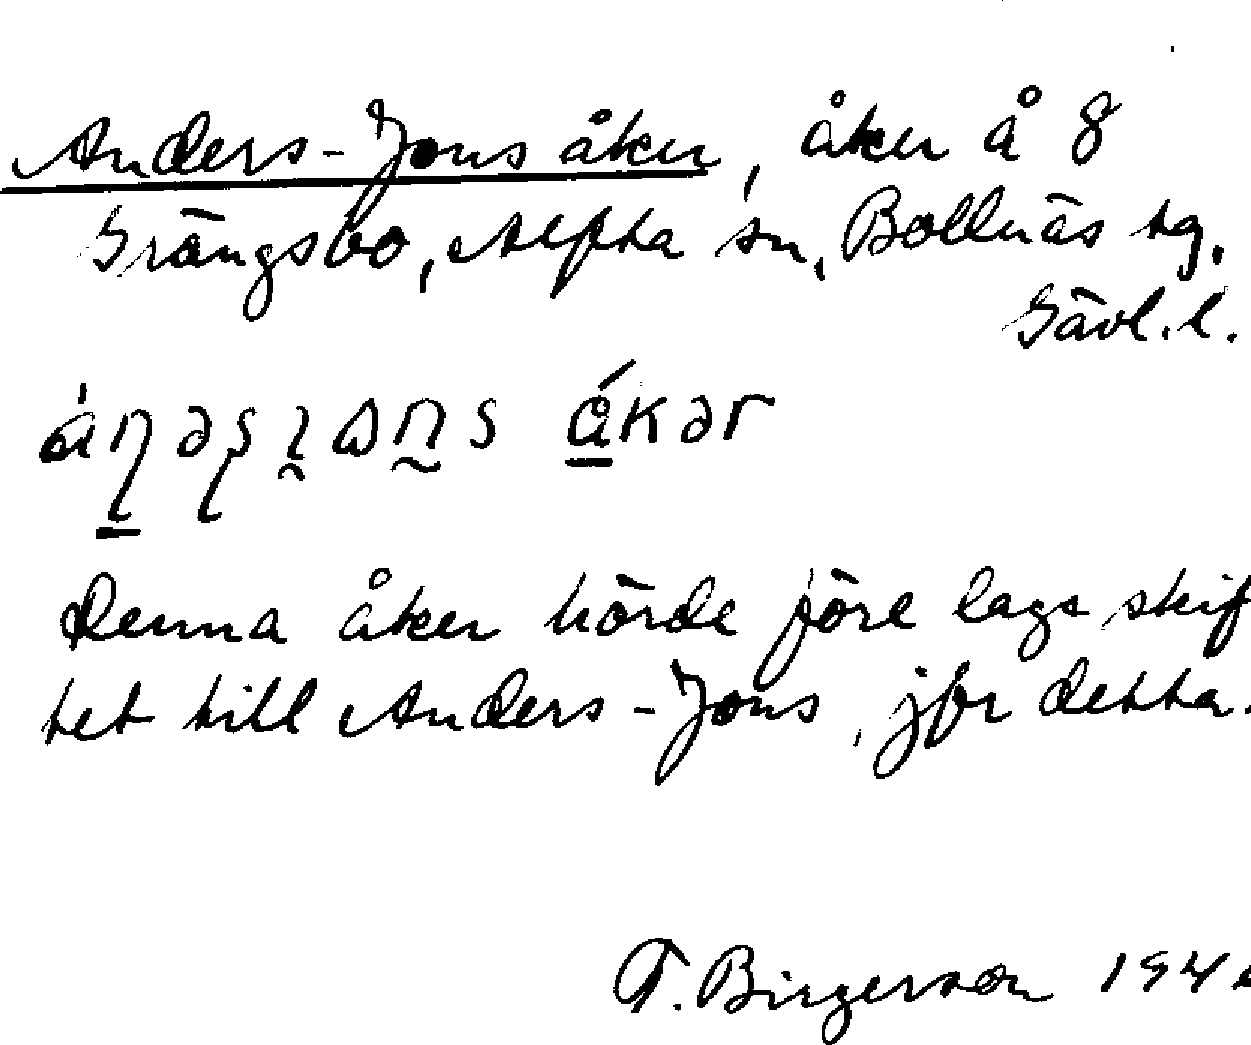 Anders-Jons åker, åker å 8
Grängsbo, Alfta sn, Bollnäs tg.
Gävl. l.
åker
Denna åker hörde före laga skif
tet till Anders-Jons, jfr detta.
T. Birgerson